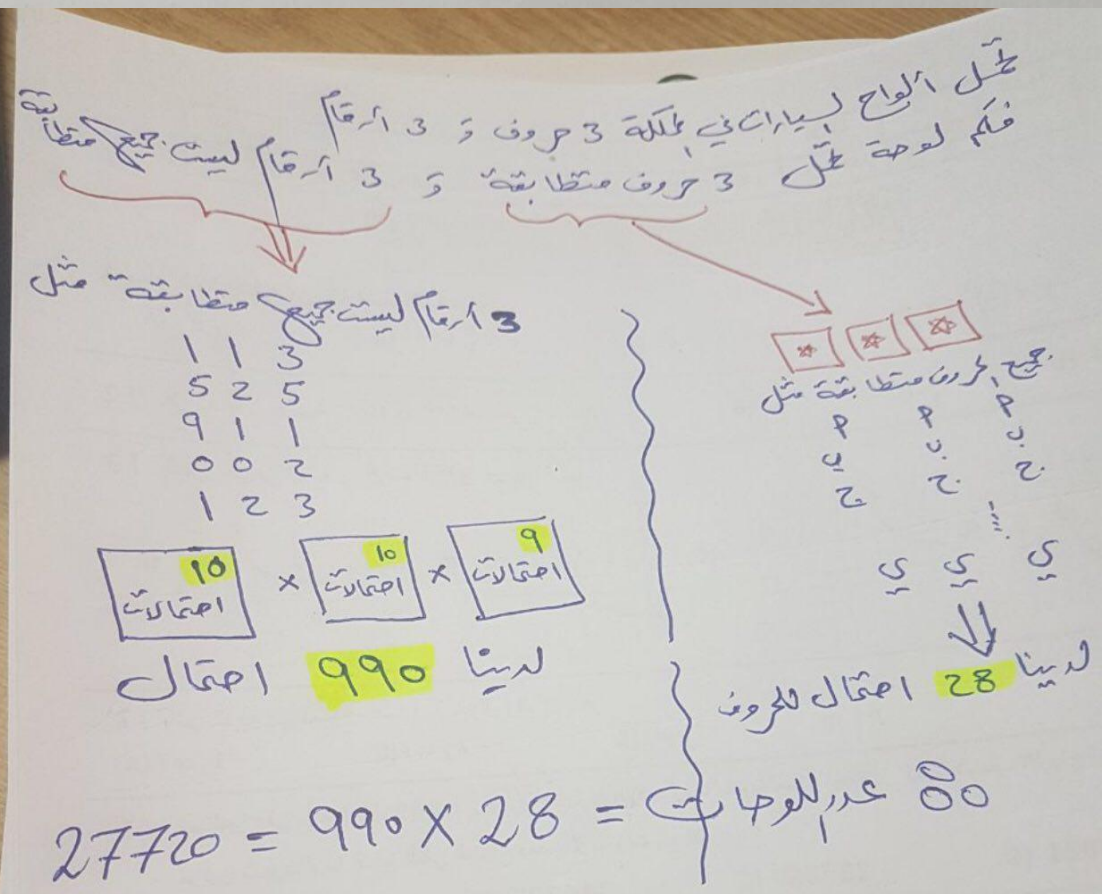 تحمل ألواح السيارات في المملكة 3 حروف و 3 أرقام
فكم لوحة تحمل 3 حروف متطابقة و 3 أرقام ليست جميع متطابقة
3 أرقام ليست جميع متطابقة مثل
1 1 3
5 2 5
9 1 1
0 0 2
1 2 3
10 احتمالات × 10 احتمالات × 9 احتمالات
لدينا 990 احتمال
جميع الحروف متطابقة مثل
م م م
ب ب ب
ج ج ج
.....
ي ي ي
لدينا 28 احتمال للحروف
∴ عدد اللوحات = 28 × 990 = 27720